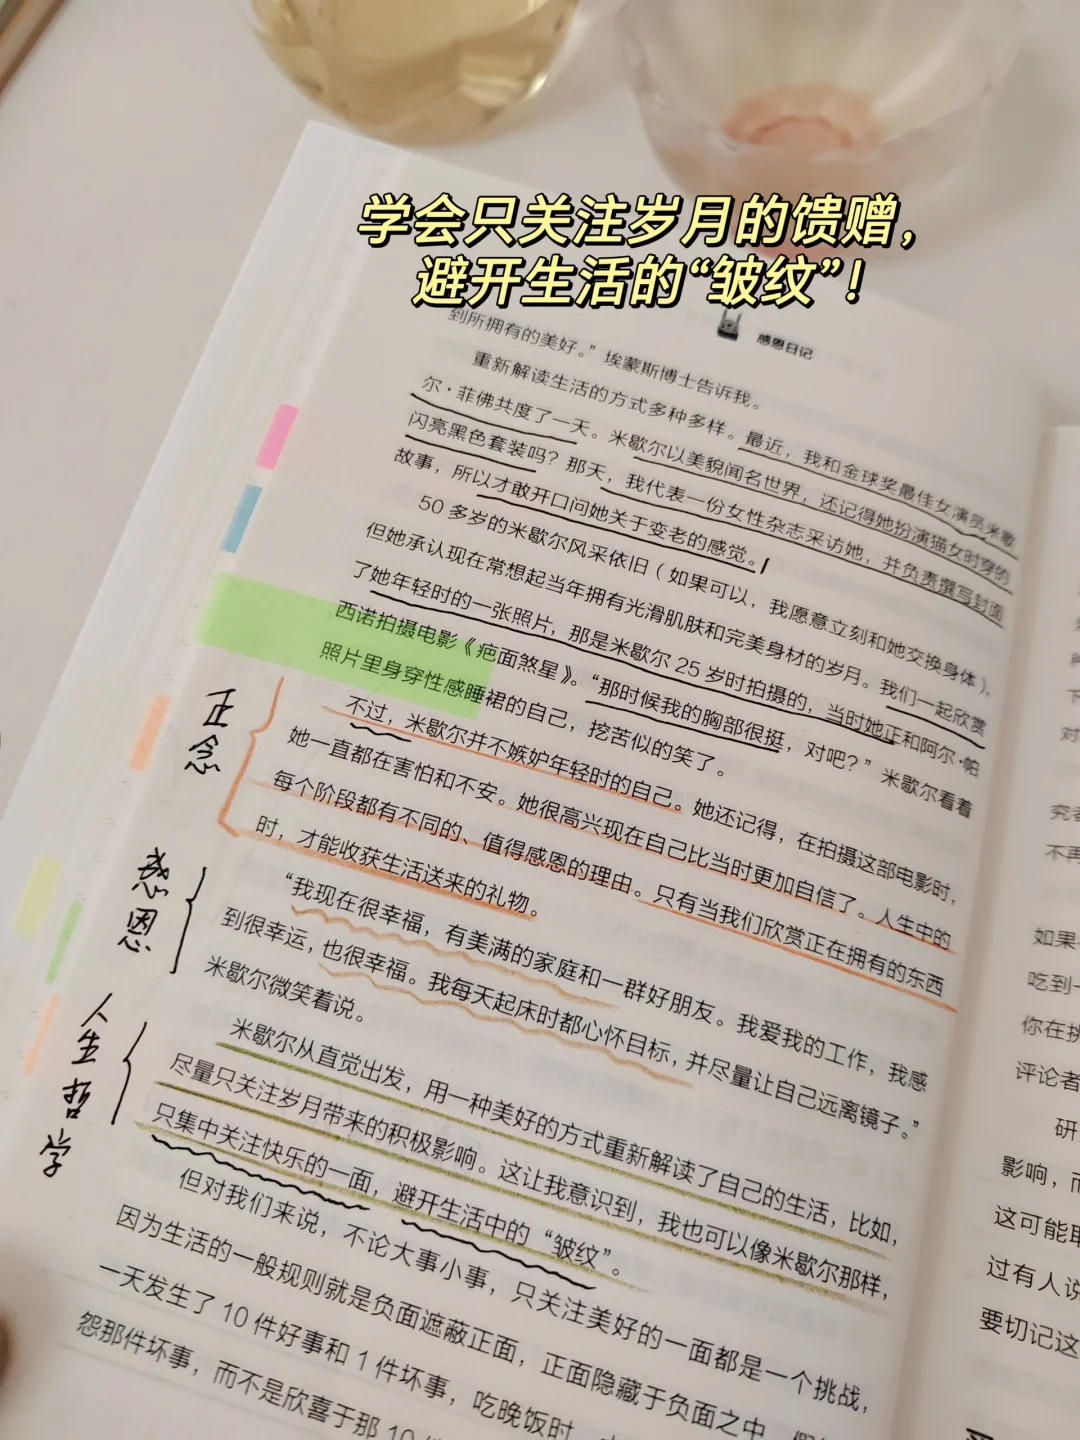 学会只关注岁月的馈赠，
避开生活的“皱纹”！
感恩日记
到所拥有的美好。”埃蒙斯博士告诉我。
重新解读生活的方式多种多样。最近，我和金球奖最佳女演员米歇
尔·菲佛共度了一天。米歇尔以美貌闻名世界，还记得她扮演猫女时穿的
闪亮黑色套装吗？那天，我代表一份女性杂志采访她，并负责撰写封面
故事，所以才敢开口问她关于变老的感觉。
50多岁的米歇尔风采依旧（如果可以，我愿意立刻和她交换身体），
但她承认现在常想起当年拥有光滑肌肤和完美身材的岁月。我们一起欣赏
了她年轻时的一张照片，那是米歇尔25岁时拍摄的，当时她正和阿尔·帕
西诺拍摄电影《疤面煞星》。“那时候我的胸部很挺，对吧？”米歇尔看着
照片里身穿性感睡裙的自己，挖苦似的笑了。
不过，米歇尔并不嫉妒年轻时的自己。她还记得，在拍摄这部电影时，
她一直都在害怕和不安。她很高兴现在自己比当时更加自信了。人生中的
每个阶段都有不同的、值得感恩的理由。只有当我们欣赏正在拥有的东西
时，才能收获生活送来的礼物。
“我现在很幸福，有美满的家庭和一群好朋友。我爱我的工作，我感
到很幸运，也很幸福。我每天起床时都心怀目标，并尽量让自己远离镜子。”
米歇尔微笑着说。
米歇尔从直觉出发，用一种美好的方式重新解读了自己的生活，比如，
尽量只关注岁月带来的积极影响。这让我意识到，我也可以像米歇尔那样，
只集中关注快乐的一面，避开生活中的“皱纹”。
但对我们来说，不论大事小事，只关注美好的一面都是一个挑战，
因为生活的一般规则就是负面遮蔽正面，正面隐藏于负面之中。
一天发生了10件好事和1件坏事，吃晚饭时
怨那件坏事，而不是欣喜于那10
正念
感恩
人生哲学
究
不再
如果
吃到一
你在挑
评论者
研
影响，而
这可能
过有人说
要切记这